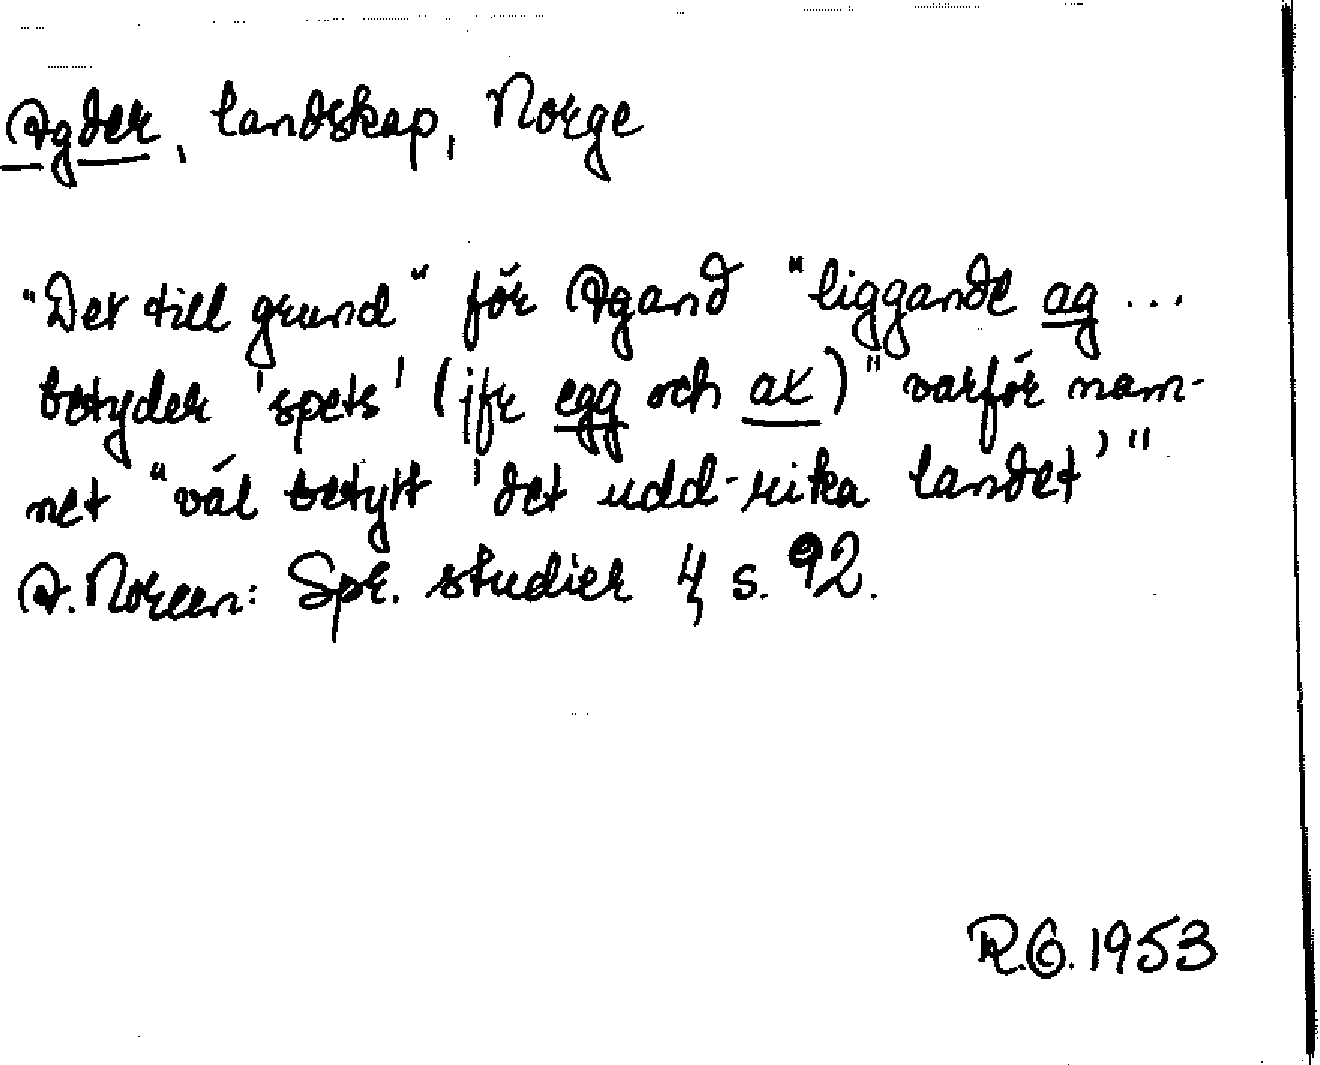 Agder, landskap, Norge
"Det till grund" för Agand "liggande ag ...
betyder 'spets' (jfr egg och ax)" varför nam-
net "väl betytt 'det udd-rika landet'"
A. Noreen: Spr. studier 4, s. 92.
R.G. 1953